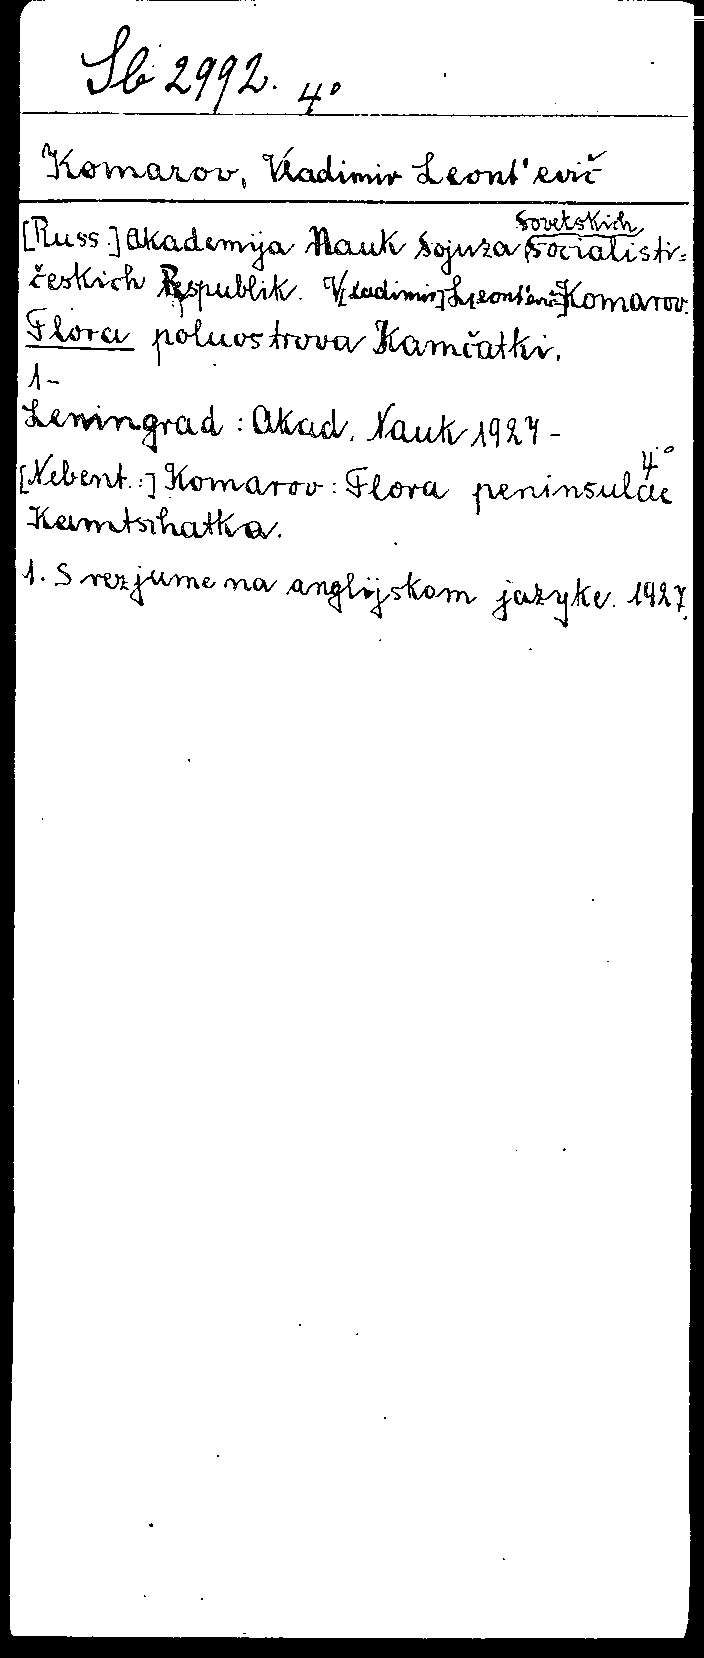 Sb 2992. 4°
Komarov, Vladimir Leont'evič
[Russ.] Akademija Nauk Sojuza Sovetskich Socialisti=
českich Respublik. V[ladimir] L[eont'evič] Komarov.
Flora poluostrova Kamčatki.
1-
Leningrad: Akad. Nauk 1927-
4°
[Nebent.:] Komarov: Flora peninsulae
Kamtschatka.
1. S rezjume na anglijskom jazyke. 1927.